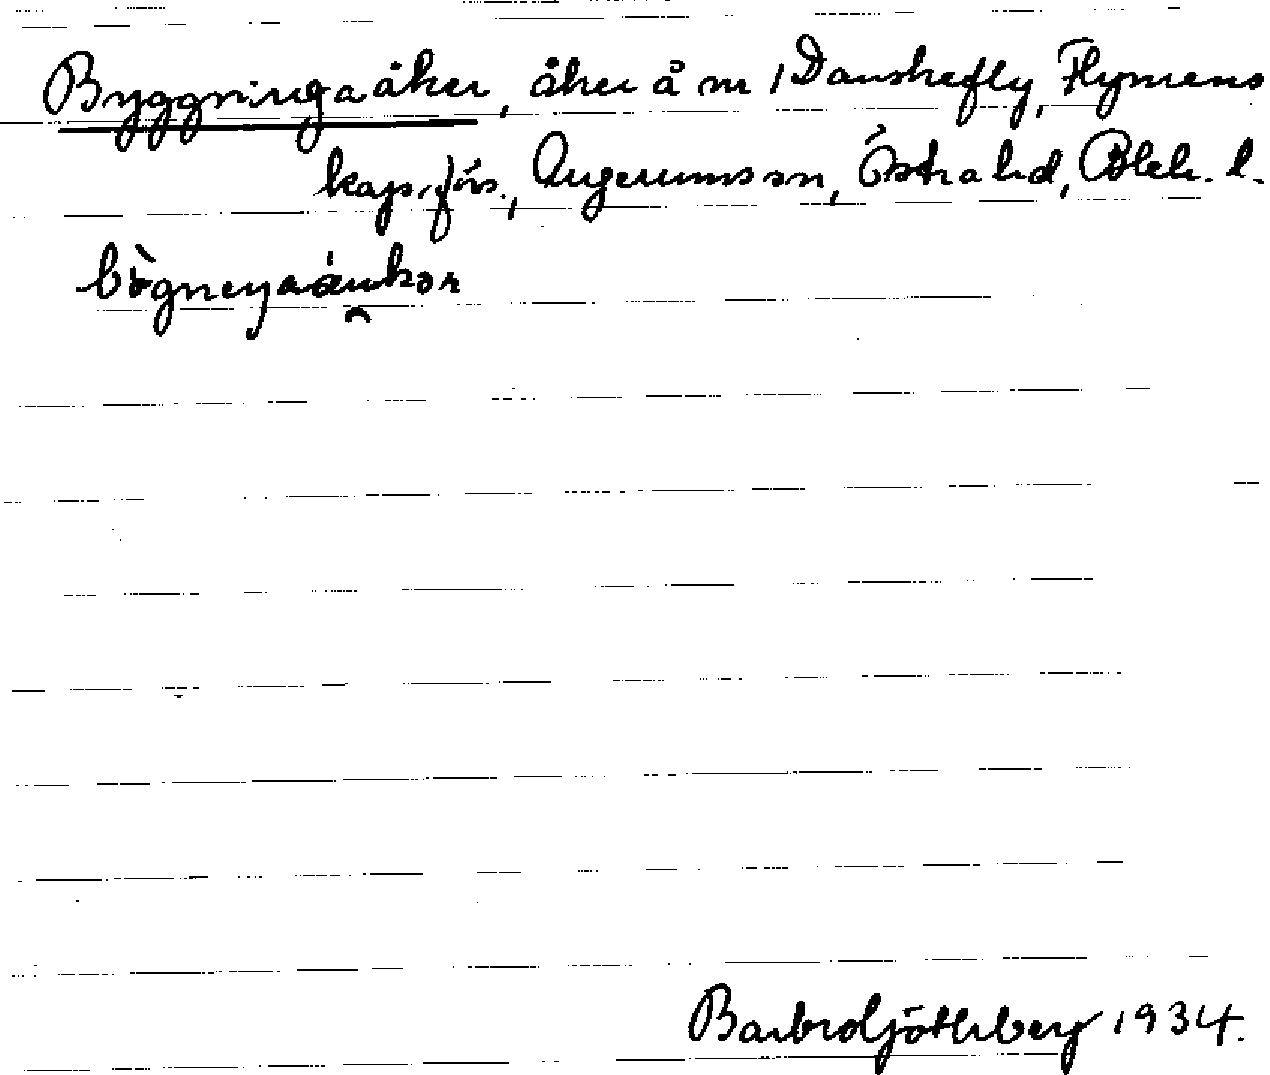 Byggningaåker, åker å nr 1 Danskefly, Flymens
kaps.förs., Augerums sn, Östra hd, Blek. l.
Barbro Ljöthberg 1934.